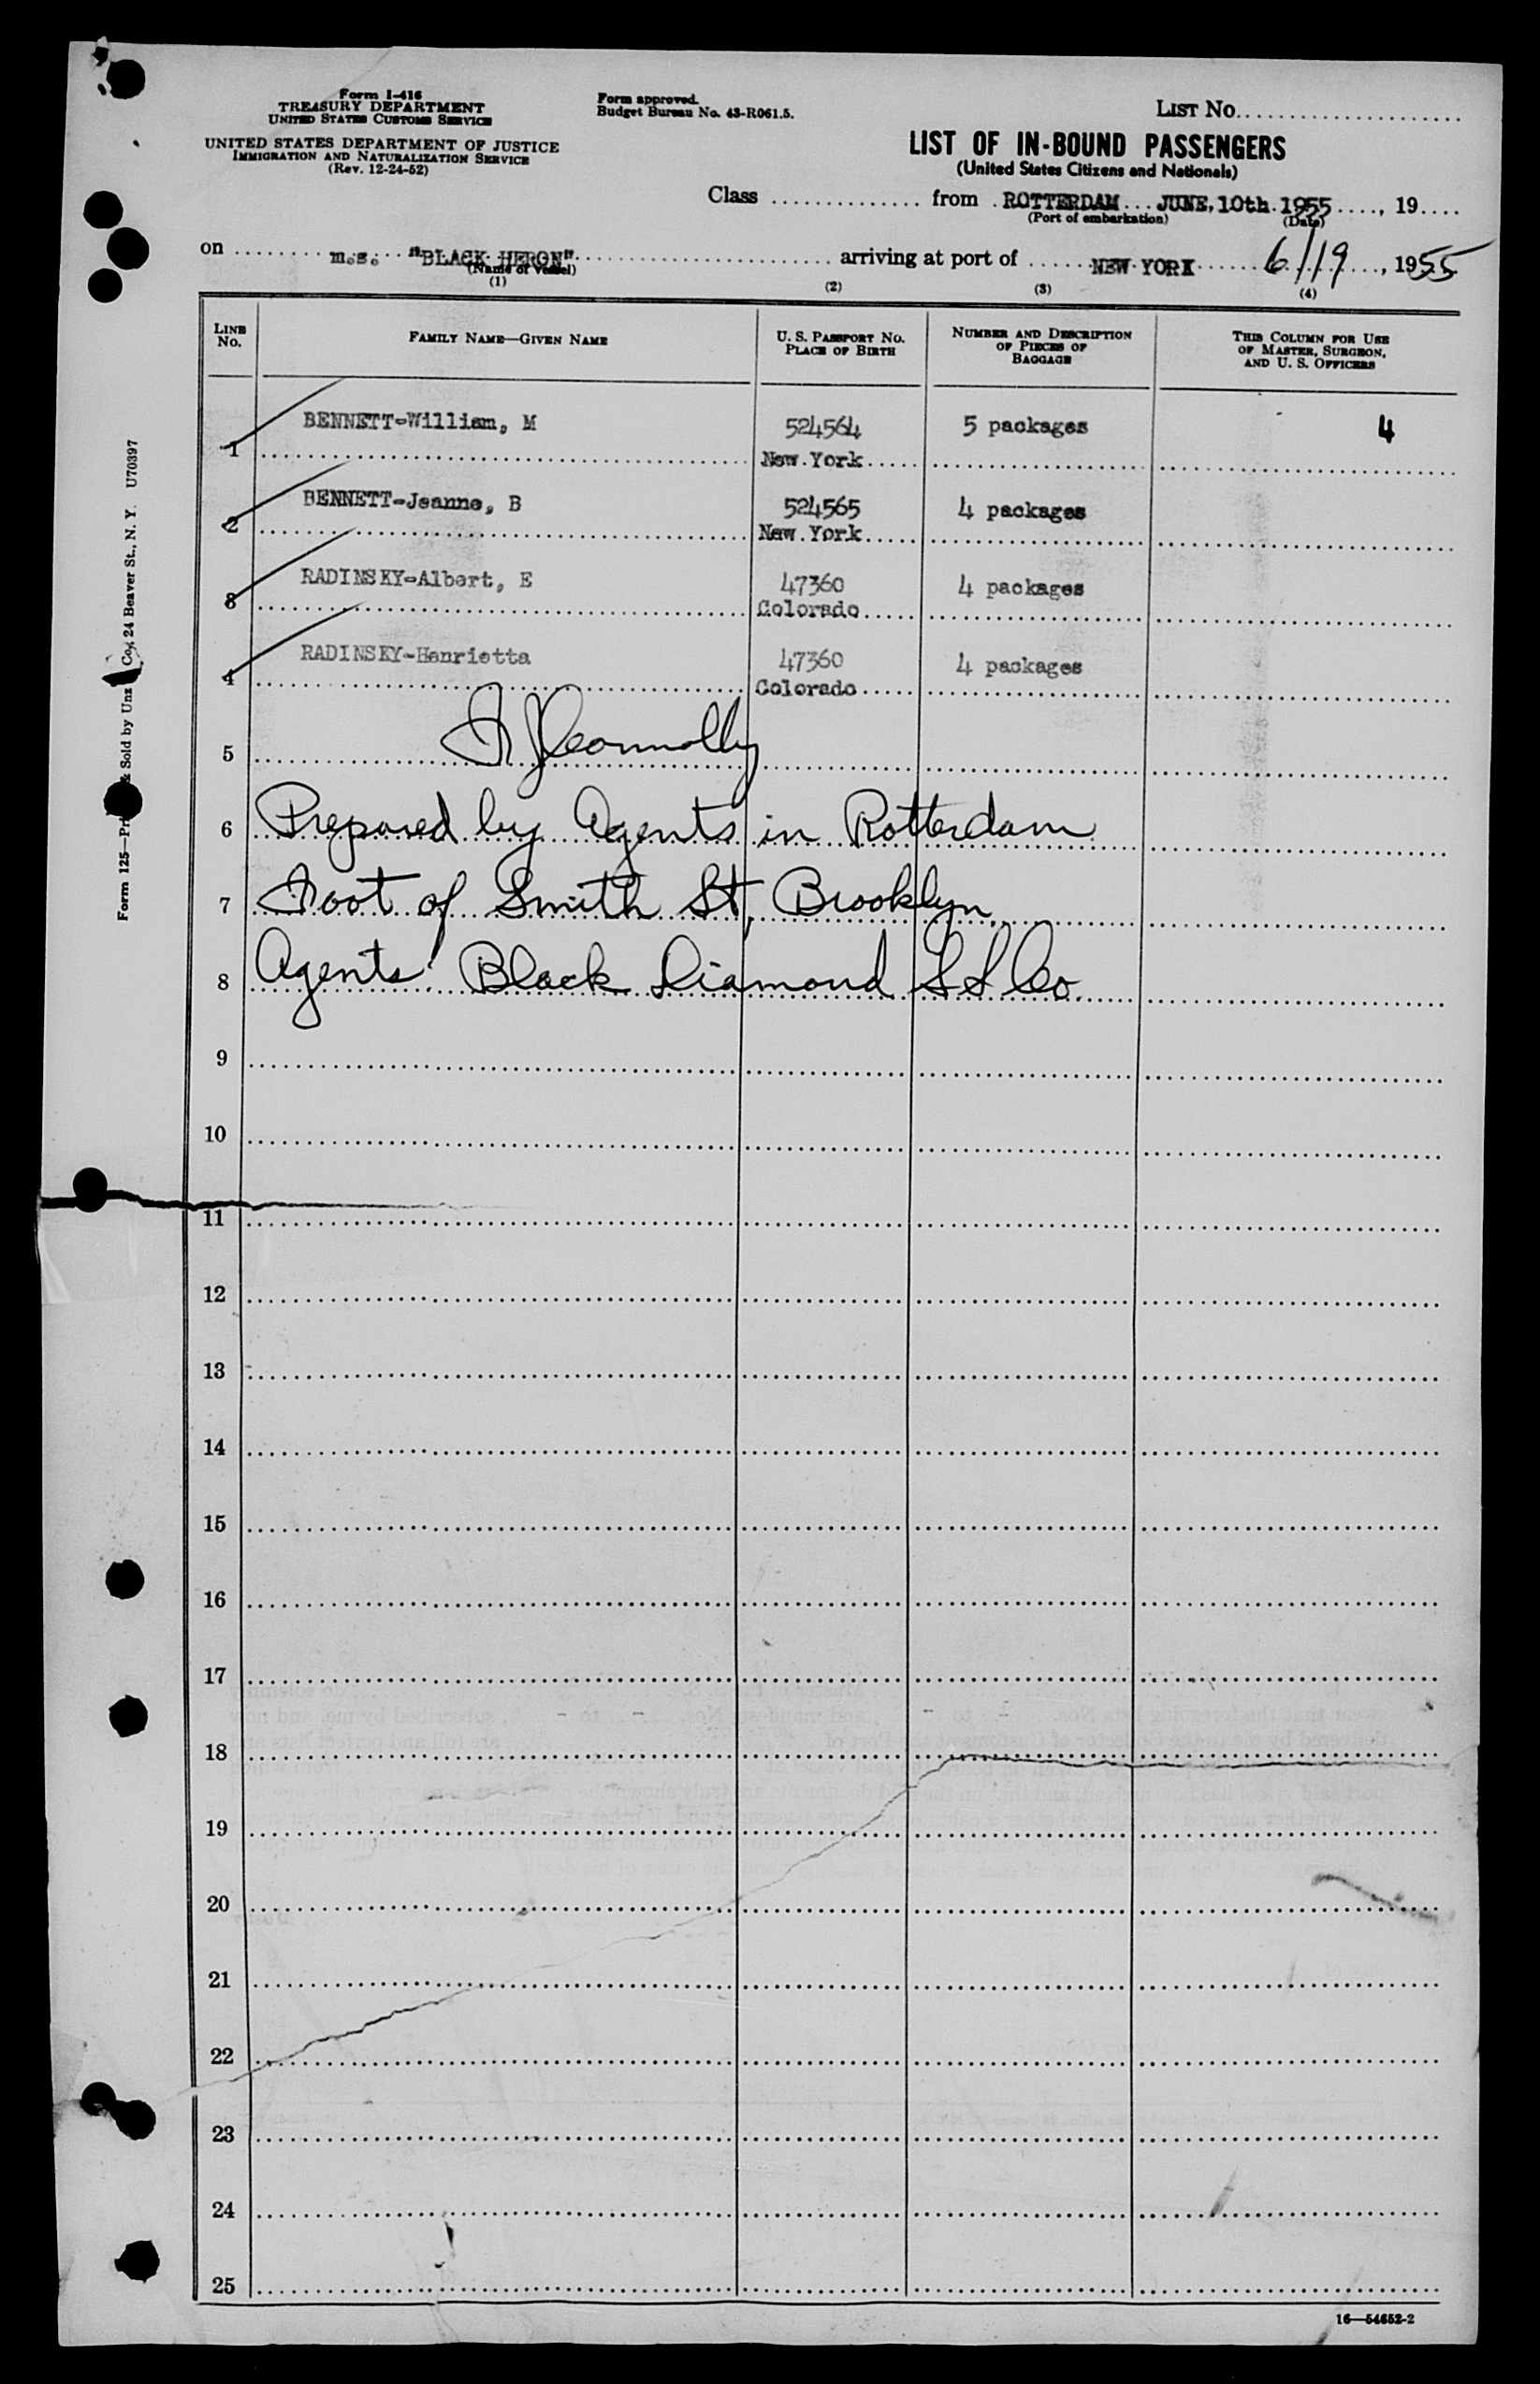 Form I-416
TREASURY DEPARTMENT
UNITED STATES CUSTOMS SERVICE
UNITED STATES DEPARTMENT OF JUSTICE
IMMIGRATION AND NATURALIZATION SERVICE
(Rev. 12-24-52)
Form approved.
Budget Bureau No. 43-R061.5.
LIST No.
LIST OF IN-BOUND PASSENGERS
(United States Citizens and Nationals)
Class from ROTTERDAM JUNE, 10th. 1955, 19
(Port of embarkation) (Date)
on m.s. "BLACK HERON" arriving at port of NEW YORK 6/19, 1955
(Name of vessel)
(1) (2) (3) (4)
LINE No. FAMILY NAME—GIVEN NAME U. S. PASSPORT No. PLACE OF BIRTH NUMBER AND DESCRIPTION OF PIECES OF BAGGAGE THIS COLUMN FOR USE OF MASTER, SURGEON, AND U. S. OFFICERS
1 BENNETT-William, M 524564 5 packages 4
New York
2 BENNETT-Jeanne, B 524565 4 packages
New York
3 RADINSKY-Albert, E 47360 4 packages
Colorado
4 RADINSKY-Henrietta 47360 4 packages
Colorado
5 Connolly
6 Prepared by Agents in Rotterdam
7 Foot of Smith St, Brooklyn.
8 Agents: Black Diamond S S Co.
9
10
11
12
13
14
15
16
17
18
19
20
21
22
23
24
25
16—54652-2
Form 125— & Sold by Unz Co., 24 Beaver St., N. Y. U70397